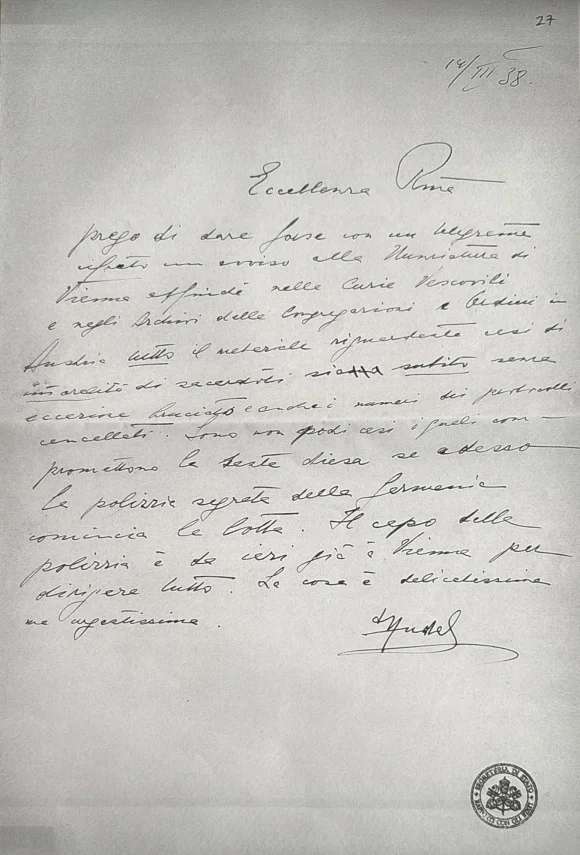 27
14/III 38.
Eccellenza Rma
prego di dare forse con un telegramma
cifrato un avviso alla Nunziatura di
Vienna affinché nelle Curie Vescovili
e negli Archivi delle Congregazioni e Ordini in
Austria tutto il materiale riguardante casi di
immoralità di sacerdoti subito senza
eccezione bruciato e anche i numeri dei protocolli
cancellati. Sono non pochi casi i quali com-
promettono la Santa chiesa se adesso
la polizzia segreta della Germania
comincia la lotta. Il capo della
polizzia è da ieri già a Vienna per
dirigere tutto. La cosa è delicatissima
ma urgentissima.
+Hudal
SEGRETERIA DI STATO
RAPPORTI CON GLI STATI